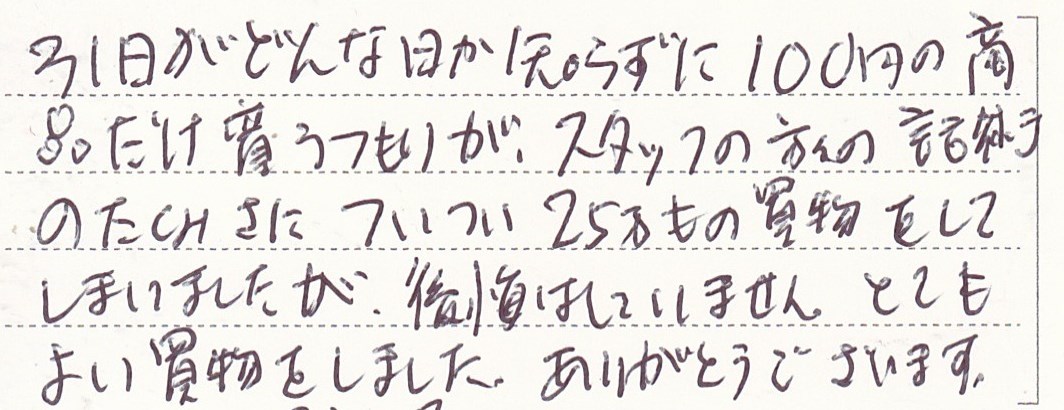 31日がどんな日か知らずに100円の商
品だけ買うつもりが、スタッフの方々の話術
のたくみさについつい25万もの買物をして
しまいましたが、後悔はしていません。とても
よい買物をしました。ありがとうございます。